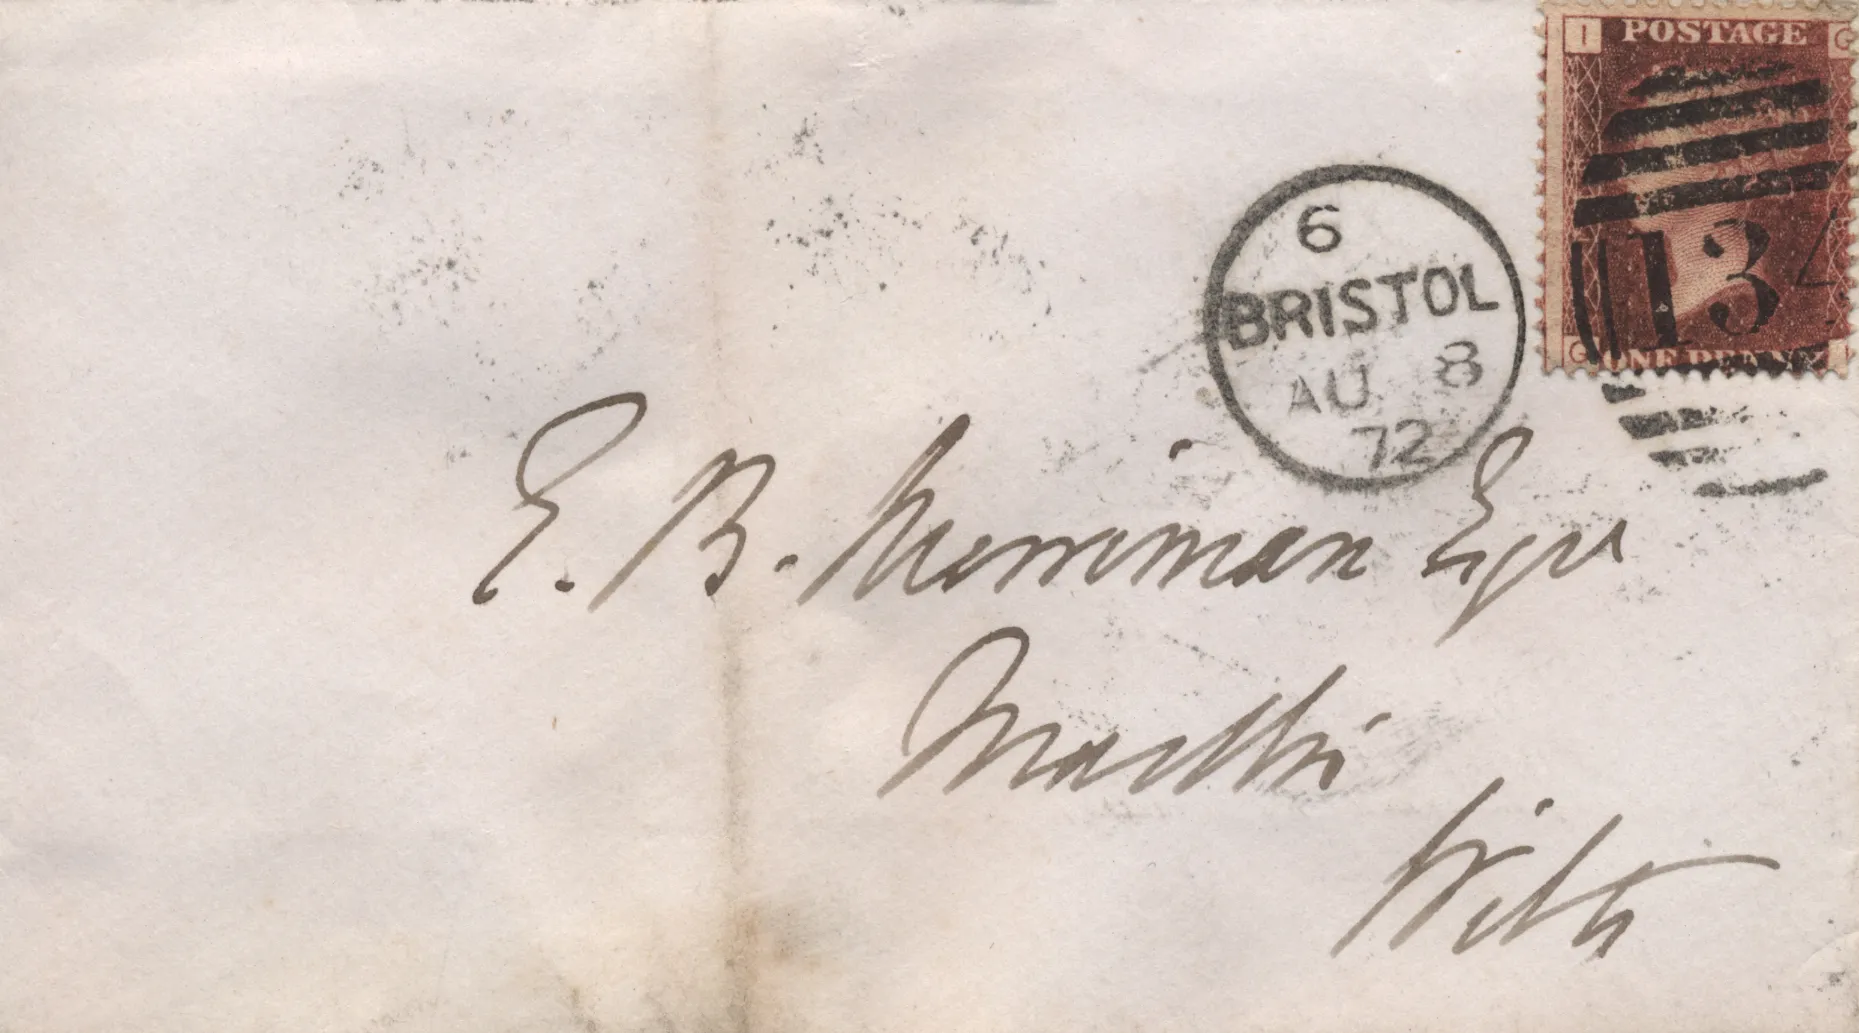 I POSTAGE G
134
G ONE PENNY I
6
BRISTOL
AU 8
72
E. B. Merriman Esqre
Wilts